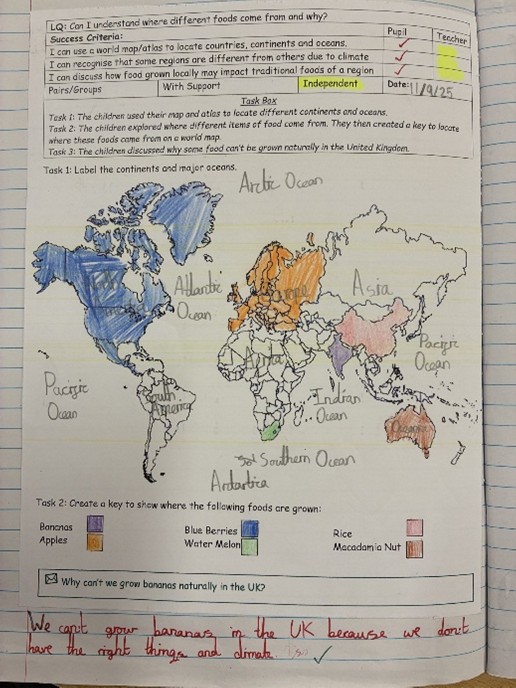 LQ: Can I understand where different foods come from and why?
Success Criteria: Pupil Teacher
I can use a world map/atlas to locate countries, continents and oceans.
I can recognise that some regions are different from others due to climate
I can discuss how food grown locally may impact traditional foods of a region
Pairs/Groups With Support Independent Date: 11/9/25
Task Box
Task 1: The children used their map and atlas to locate different continents and oceans.
Task 2: The children explored where different items of food come from. They then created a key to locate
where these foods come from on a world map.
Task 3: The children discussed why some food can't be grown naturally in the United Kingdom.
Task 1: Label the continents and major oceans.
Arctic Ocean
North America
Atlantic Ocean
Europe
Asia
Pacific Ocean
Africa
Pacific Ocean
South America
Indian Ocean
Oceania
Southern Ocean
Antartica
Task 2: Create a key to show where the following foods are grown:
Bananas Blue Berries Rice
Apples Water Melon Macadamia Nut
Why can't we grow bananas naturally in the UK?
We can't grow bananas in the UK because we don't
have the right things and climate.